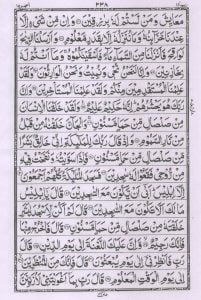 ٢٣٨
مَعَايِشَ وَمَنْ لَّسْتُمْ لَهٗ بِرٰزِقِيْنَ ۝ وَاِنْ مِّنْ شَيْءٍ اِلَّا
عِنْدَنَا خَزَآئِنُهٗ وَمَا نُنَزِّلُهٗٓ اِلَّا بِقَدَرٍ مَّعْلُوْمٍ ۝ وَاَرْسَلْنَا الرِّيٰحَ
لَوَاقِحَ فَاَنْزَلْنَا مِنَ السَّمَآءِ مَآءً فَاَسْقَيْنٰكُمُوْهُ وَمَآ اَنْتُمْ لَهٗ
بِخٰزِنِيْنَ ۝ وَاِنَّا لَنَحْنُ نُحْيٖ وَنُمِيْتُ وَنَحْنُ الْوٰرِثُوْنَ ۝ وَلَقَدْ
عَلِمْنَا الْمُسْتَقْدِمِيْنَ مِنْكُمْ وَلَقَدْ عَلِمْنَا الْمُسْتَاْخِرِيْنَ ۝ وَاِنَّ
رَبَّكَ هُوَ يَحْشُرُهُمْ اِنَّهٗ حَكِيْمٌ عَلِيْمٌ ۝ وَلَقَدْ خَلَقْنَا الْاِنْسَانَ
مِنْ صَلْصَالٍ مِّنْ حَمَاٍ مَّسْنُوْنٍ ۝ وَالْجَآنَّ خَلَقْنٰهُ مِنْ قَبْلُ
مِنْ نَّارِ السَّمُوْمِ ۝ وَاِذْ قَالَ رَبُّكَ لِلْمَلٰٓئِكَةِ اِنِّيْ خَالِقٌۢ بَشَرًا
مِّنْ صَلْصَالٍ مِّنْ حَمَاٍ مَّسْنُوْنٍ ۝ فَاِذَا سَوَّيْتُهٗ وَنَفَخْتُ فِيْهِ
مِنْ رُّوْحِيْ فَقَعُوْا لَهٗ سٰجِدِيْنَ ۝ فَسَجَدَ الْمَلٰٓئِكَةُ كُلُّهُمْ اَجْمَعُوْنَ ۝
اِلَّآ اِبْلِيْسَ اَبٰٓى اَنْ يَّكُوْنَ مَعَ السّٰجِدِيْنَ ۝ قَالَ يٰٓاِبْلِيْسُ
مَا لَكَ اَلَّا تَكُوْنَ مَعَ السّٰجِدِيْنَ ۝ قَالَ لَمْ اَكُنْ لِّاَسْجُدَ لِبَشَرٍ
خَلَقْتَهٗ مِنْ صَلْصَالٍ مِّنْ حَمَاٍ مَّسْنُوْنٍ ۝ قَالَ فَاخْرُجْ مِنْهَا
فَاِنَّكَ رَجِيْمٌ ۝ وَّاِنَّ عَلَيْكَ اللَّعْنَةَ اِلٰى يَوْمِ الدِّيْنِ ۝ قَالَ
رَبِّ فَاَنْظِرْنِيْٓ اِلٰى يَوْمِ يُبْعَثُوْنَ ۝ قَالَ فَاِنَّكَ مِنَ الْمُنْظَرِيْنَ ۝
اِلٰى يَوْمِ الْوَقْتِ الْمَعْلُوْمِ ۝ قَالَ رَبِّ بِمَآ اَغْوَيْتَنِيْ لَاُزَيِّنَنَّ